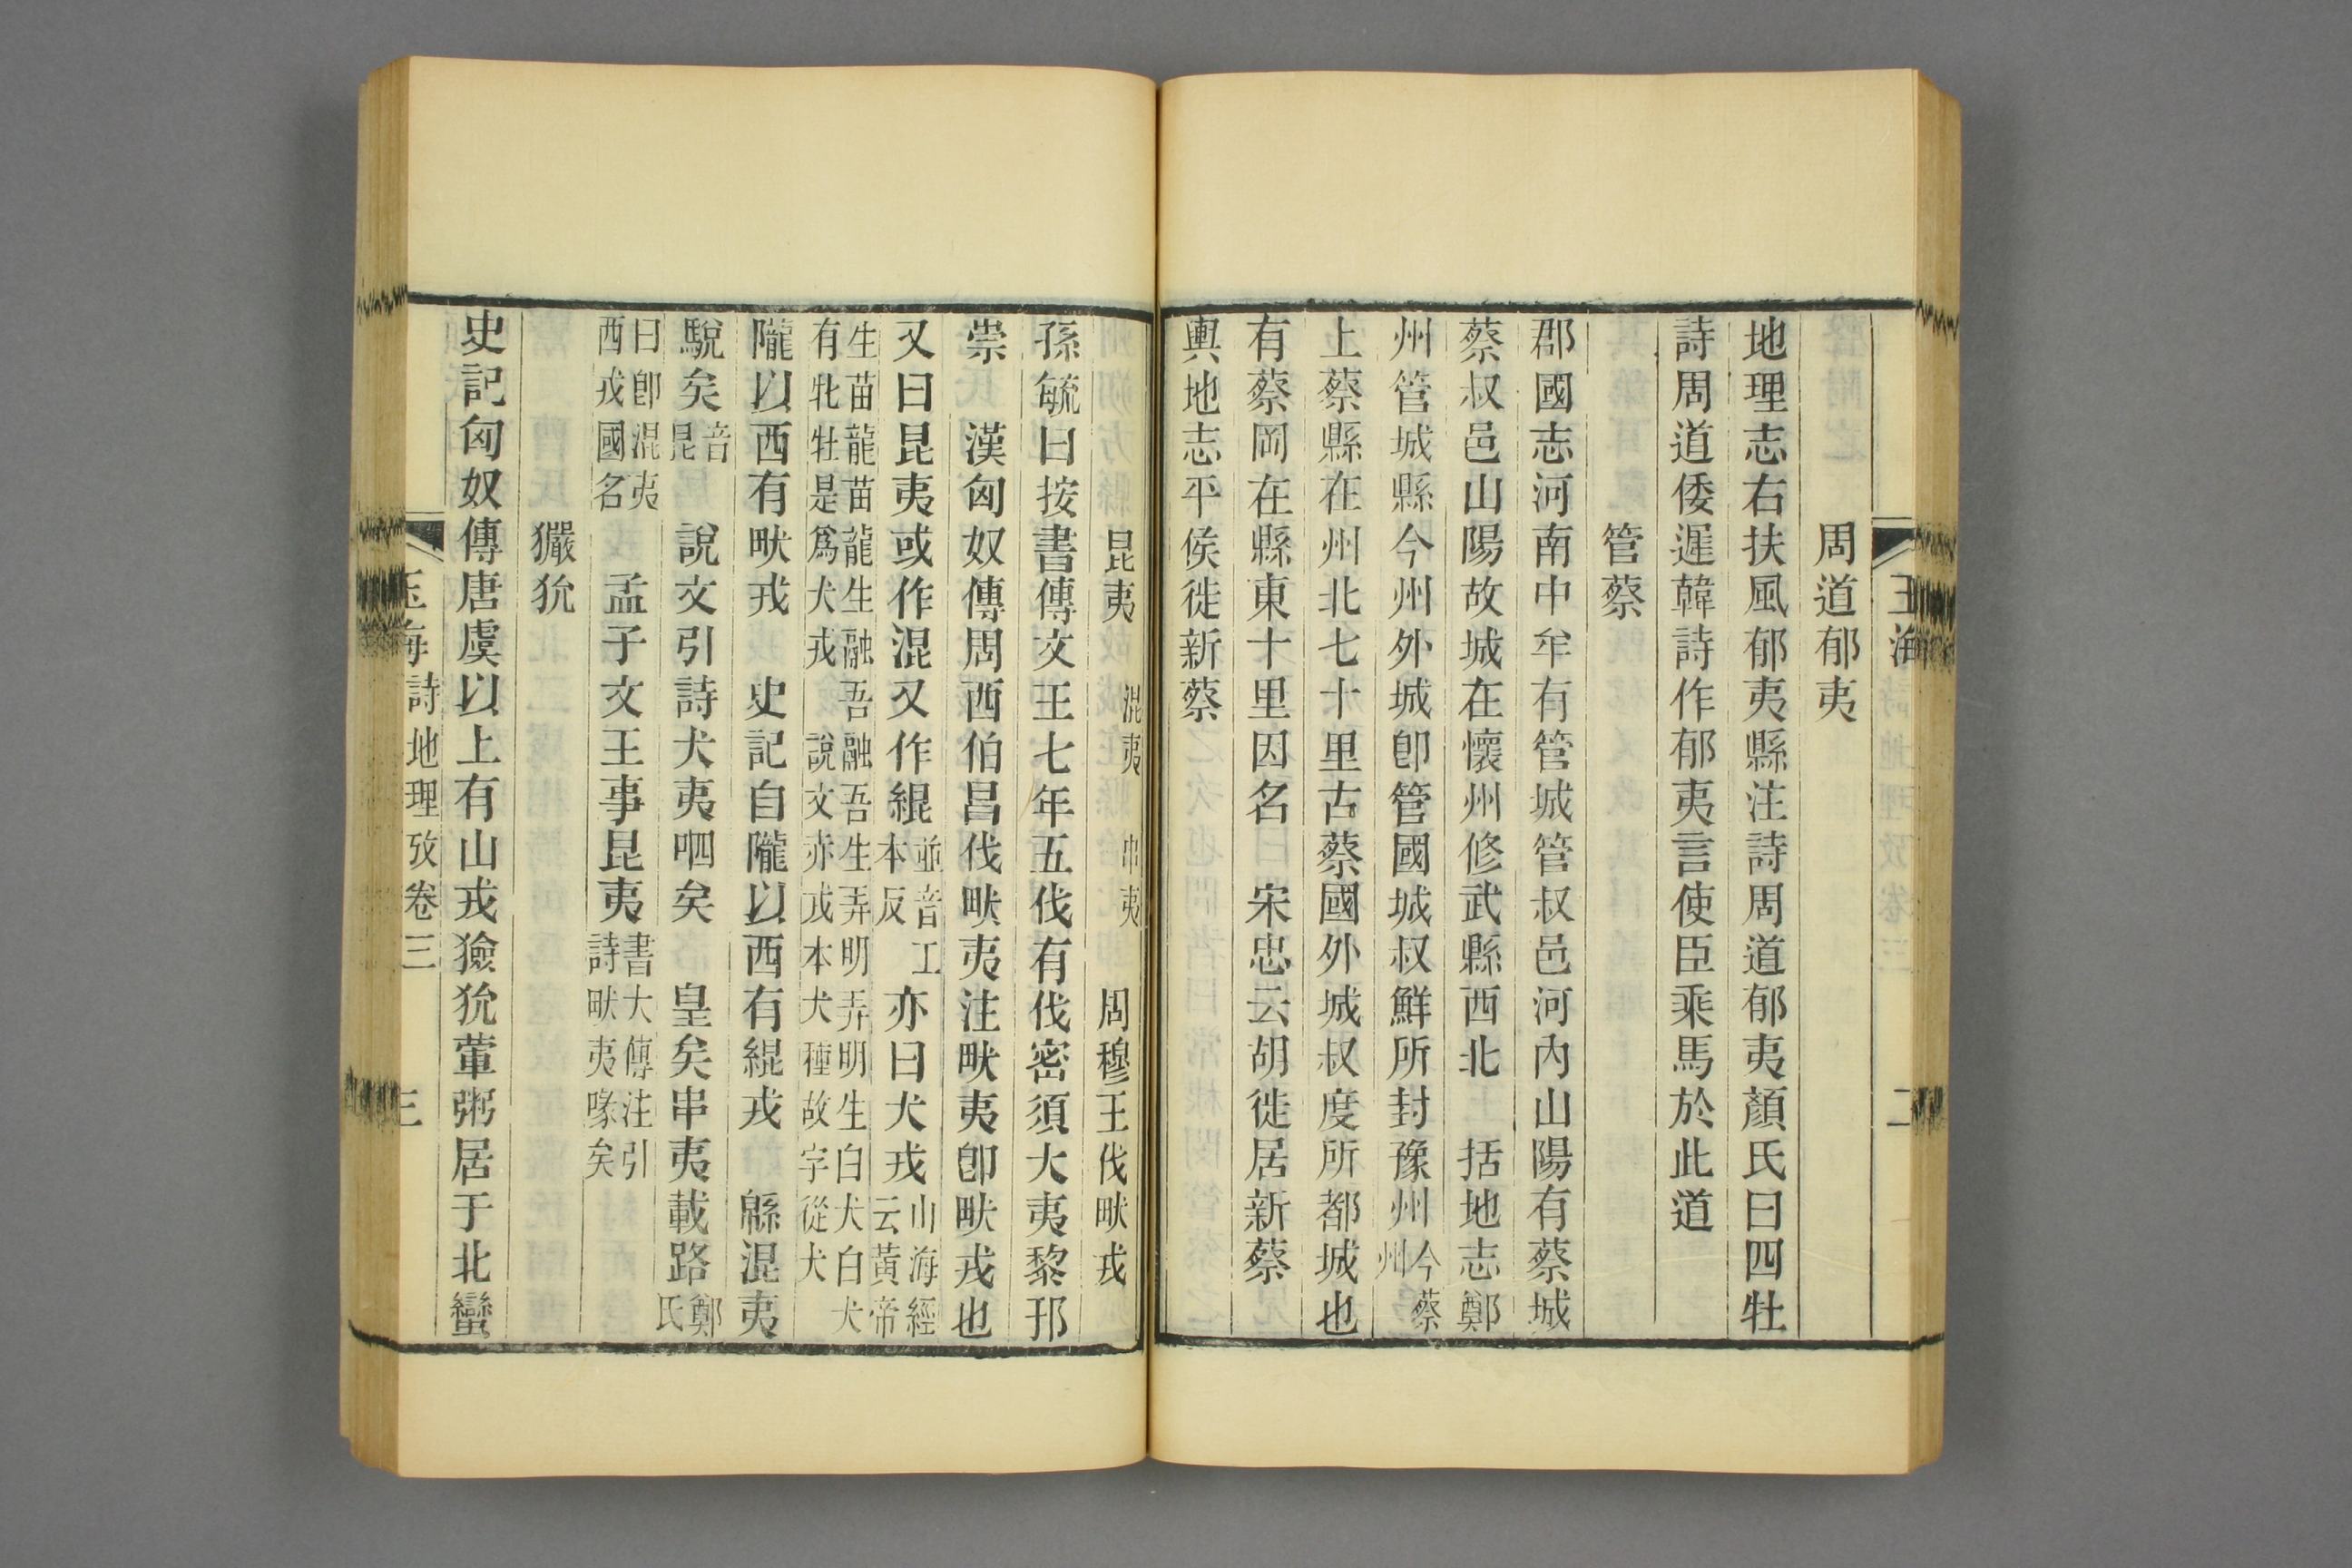 玉海
二
周道郁夷
地理志右扶風郁夷縣注詩周道郁夷顏氏曰四牡
詩周道倭遲韓詩作郁夷言使臣乘馬於此道
管蔡
郡國志河南中牟有管城管叔邑河內山陽有蔡城
蔡叔邑山陽故城在懷州修武縣西北　括地志鄭
州管城縣今州外城卽管國城叔鮮所封豫州今蔡州
上蔡縣在州北七十里古蔡國外城叔度所都城也
有蔡岡在縣東十里因名　宋忠云胡徙居新蔡
輿地志平侯徙新蔡
昆夷　混夷　串夷　周穆王伐畎戎
孫毓曰按書傳文王七年五伐有伐密須大夷黎邘
崇　漢匈奴傳周西伯昌伐畎夷注畎夷卽畎戎也
又曰昆夷或作混又作緄並音工本反亦曰犬戎山海經云黃帝
生苗龍苗龍生融吾融吾生弄明弄明生白犬白犬
有牝牡是爲犬戎　說文赤戎本犬種故字從犬
隴以西有畎戎　史記自隴以西有緄戎　緜混夷
駾矣音昆　說文引詩犬夷呬矣　皇矣串夷載路鄭氏
曰卽混夷西戎國名　孟子文王事昆夷書大傳注引詩畎夷喙矣
玁狁
史記匈奴傳唐虞以上有山戎獫狁葷粥居于北蠻
玉海詩地理攷卷三
三